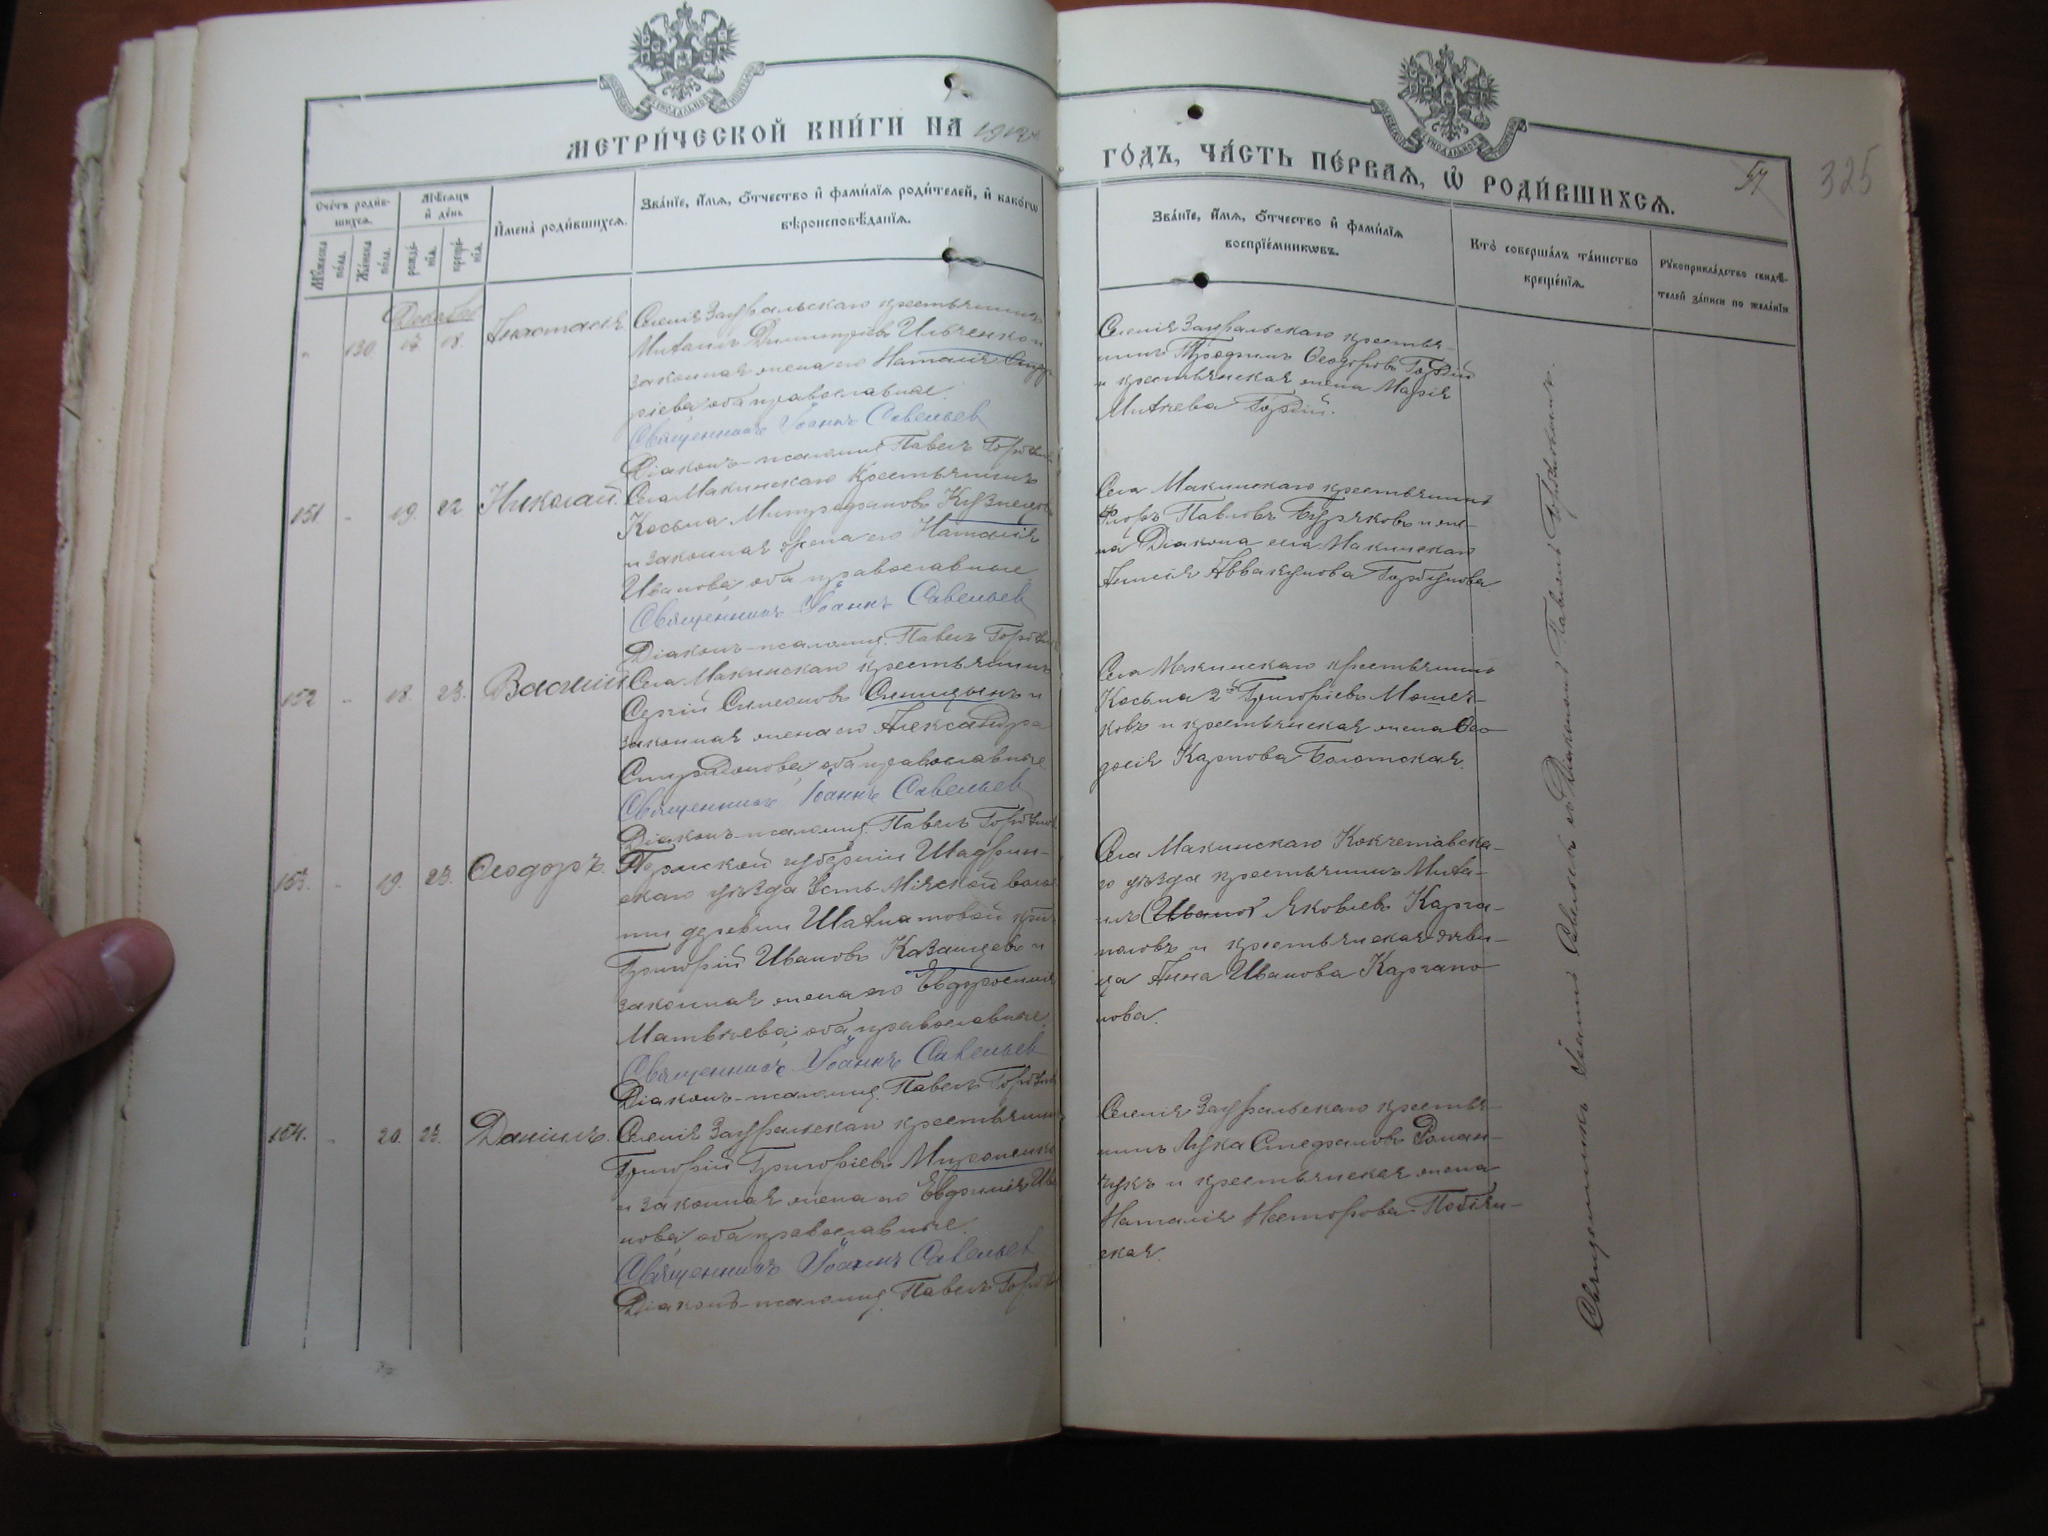 МЕТРИ́ЧЕСКОЙ КНИ́ГИ НА 1912
ГО́ДЪ, ЧА́СТЬ ПЕ́РВАЯ, Ѡ҆ РОДИ́ВШИХСЯ.
57
325
Сче́тъ роди́в-
шихся.
Мѣ́сяцъ
и҆ де́нь
Мꙋ́жеска
по́ла.
Же́нска
по́ла.
рожде́-
нїѧ.
креще́-
нїѧ.
И҆мена̀ роди́вшихся.
Зва́нїе, и҆́мя, ѻ҆́тчество и҆ фами́лїя роди́телей, и҆ како́гѡ
вѣроисповѣ́данїя.
Зва́нїе, и҆́мя, ѻ҆́тчество и҆ фами́лїя
воспрїе́мникѡвъ.
Кто̀ соверша́лъ та́инство
креще́нїя.
Рꙋкоприкла́дство свидѣ́-
телей за́писи по жела́нїю
Декабрь
130. 17. 18. Анастасія
Селенія Зауральскаго крестьянинъ
Михаилъ Димитріевъ Ильченко и
законная жена его Наталія
ріева оба православные.
Священникъ Іоаннъ Савельевъ
Діаконъ-псаломщ. Павелъ Горбуновъ
Селенія Зауральскаго крестья-
нинъ Трофимъ Ѳеодоровъ Гордій
и крестьянская жена Марія
Михеева Гордій.
151 19. 22 Николай.
Села Макинскаго крестьянинъ
Косьма Митрофановъ Кузнецовъ
и законная жена его Наталія
Иванова оба православные
Священникъ Іоаннъ Савельевъ
Діаконъ-псаломщ. Павелъ Горбуновъ
Села Макинскаго крестьянинъ
Флоръ Павловъ Буряковъ и же-
на Діакона села Макинскаго
Анисія Аввакумова Горбунова
152 18. 23. Василій
Села Макинскаго крестьянинъ
Сергій Симеоновъ Синицынъ и
законная жена его Александра
Спиридонова оба православные
Священникъ Іоаннъ Савельевъ
Діаконъ-псаломщ. Павелъ Горбуновъ
Села Макинскаго крестьянинъ
Косьма 2й Григоріевъ Мошен-
ковъ и крестьянская жена Ѳео-
досія Карпова Болотская.
153. 19. 23. Ѳеодоръ.
Пермской губерніи Шадрин-
скаго уѣзда Усть-Міясской волос
ти деревни Шахматовой кр-нъ
Григорій Ивановъ Казанцевъ и
законная жена его Евдокія
Матвѣева оба православные.
Священникъ Іоаннъ Савельевъ
Діаконъ-псаломщ. Павелъ Горбуновъ
Села Макинскаго Кокчетавска-
го уѣзда крестьянинъ Миха-
илъ (Ивановъ) Яковлевъ Карга-
половъ и крестьянская дѣви-
ца Анна Иванова Каргапо-
лова.
154. 20. 23. Даніилъ.
Селенія Зауральскаго крестьянинъ
Григорій Григоріевъ Мироненко
и законная жена его Евдокія Ива
нова оба православные.
Священникъ Іоаннъ Савельевъ
Діаконъ-псаломщ. Павелъ Горбуновъ
Селенія Зауральскаго крестья-
нинъ Лука Стефановъ Роман-
чукъ и крестьянская жена
Наталія Несторова Побѣжи-
ская.
Священникъ Іоаннъ Савельевъ съ Діакономъ Павломъ Горбуновымъ.